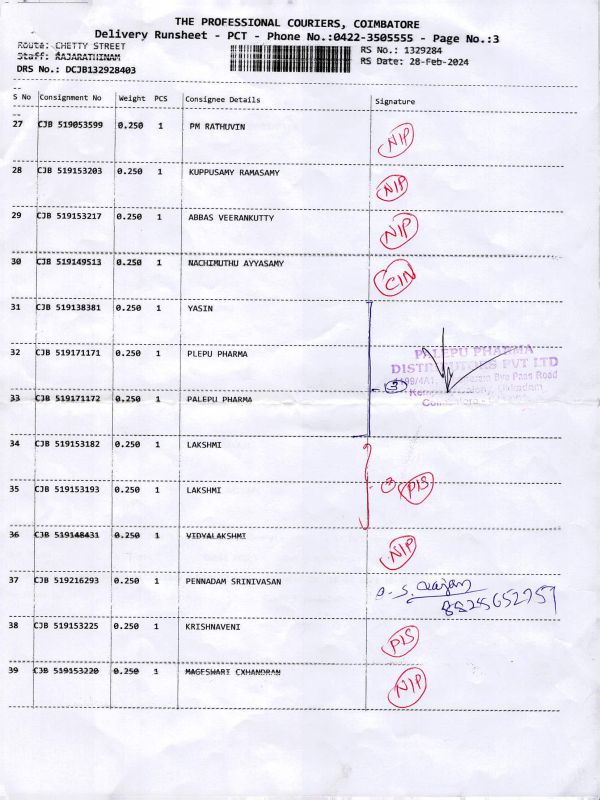 THE PROFESSIONAL COURIERS, COIMBATORE
Delivery Runsheet - PCT - Phone No.:0422-3505555 - Page No.:3
Route: CHETTY STREET
RS No.: 1329284
Staff: RAJARATHINAM
RS Date: 28-Feb-2024
DRS No.: DCJB132928403
S No Consignment No Weight PCS Consignee Details Signature
27 CJB 519053599 0.250 1 PM RATHUVIN NIP
28 CJB 519153203 0.250 1 KUPPUSAMY RAMASAMY NIP
29 CJB 519153217 0.250 1 ABBAS VEERANKUTTY NIP
30 CJB 519149513 0.250 1 NACHIMUTHU AYYASAMY CIN
31 CJB 519138381 0.250 1 YASIN
32 CJB 519171171 0.250 1 PLEPU PHARMA
PALEPU PHARMA
DISTRIBUTORS PVT LTD
Bye Pass Road
33 CJB 519171172 0.250 1 PALEPU PHARMA 3
34 CJB 519153182 0.250 1 LAKSHMI
35 CJB 519153193 0.250 1 LAKSHMI PIS
36 CJB 519148431 0.250 1 VIDYALAKSHMI NIP
37 CJB 519216293 0.250 1 PENNADAM SRINIVASAN
38 CJB 519153225 0.250 1 KRISHNAVENI PIS
39 CJB 519153220 0.250 1 MAGESWARI CXHANDRAN NIP